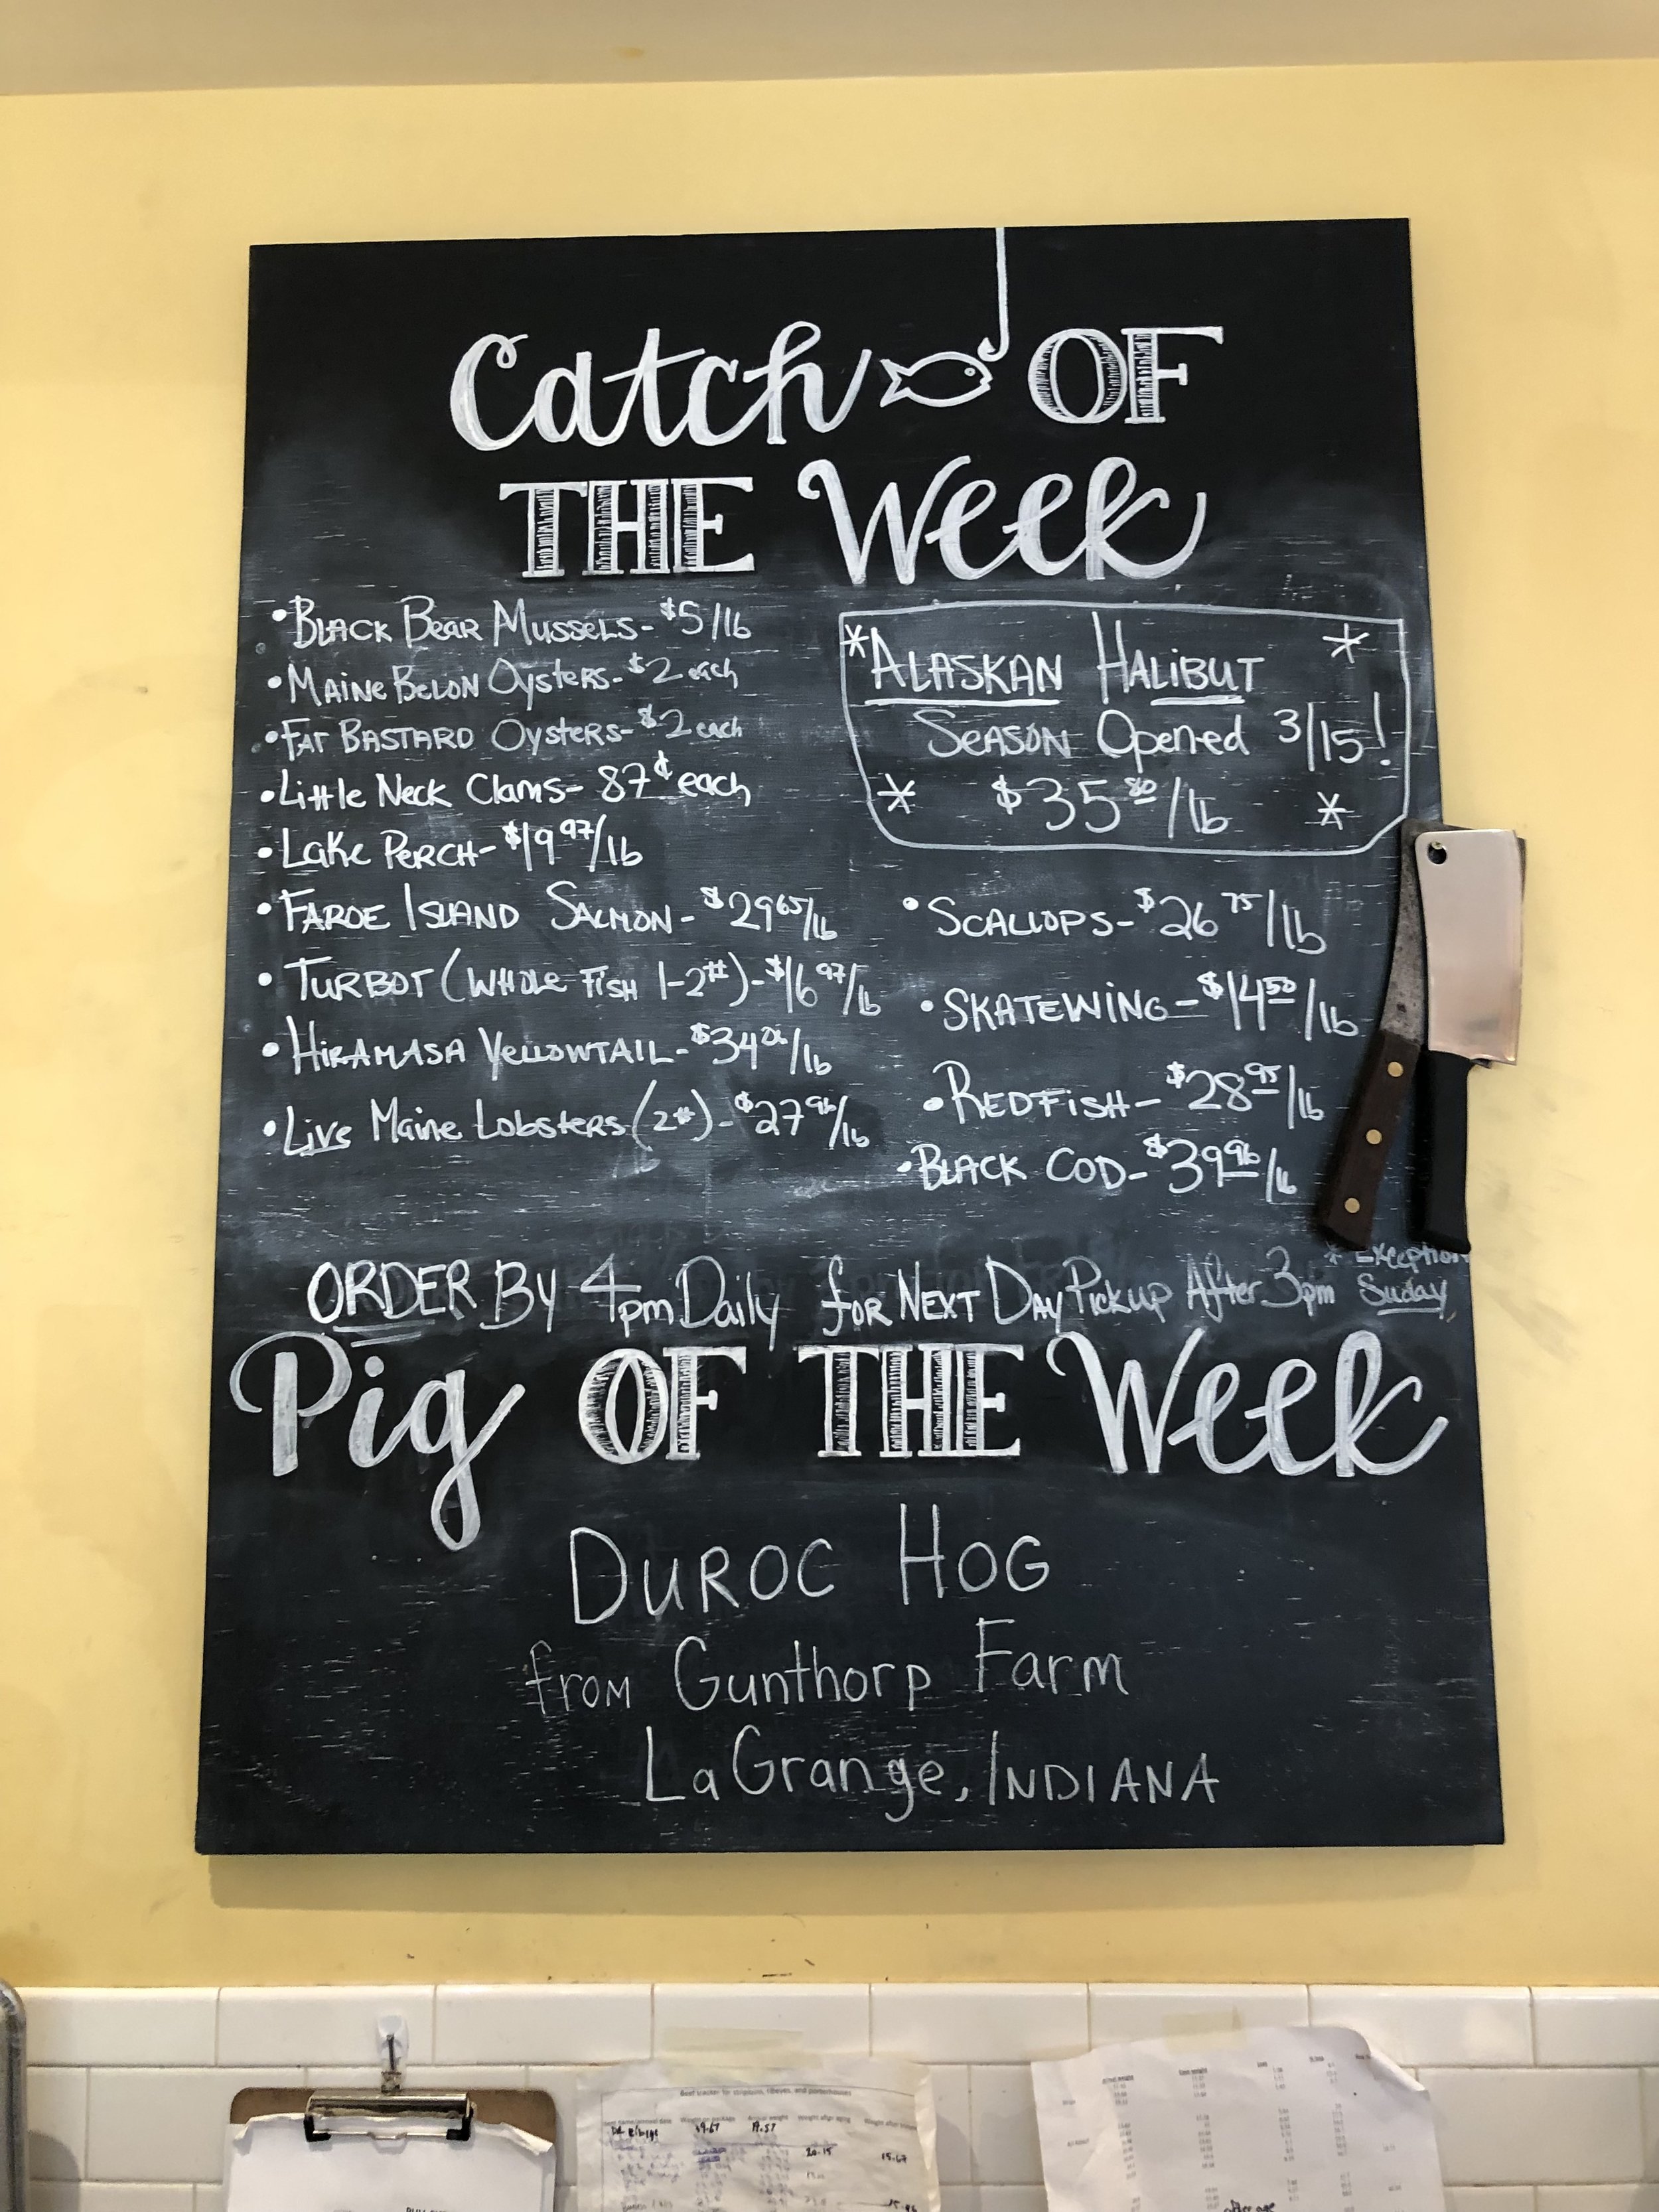 Catch OF
THE Week
•BLACK BEAR MUSSELS- $5/lb
•MAINE BELON OYSTERS- $2 each
•FAT BASTARD OYSTERS- $2 each
•Little Neck Clams- 87¢ each
•LAKE PERCH- $19 97/lb
•FAROE ISLAND SALMON- $29 65/lb
•TURBOT (WHOLE FISH 1-2#)- $16 97/lb
•HIRAMASA YELLOWTAIL- $34 06/lb
•LIVE MAINE LOBSTERS (2#)- $27 96/lb
*ALASKAN HALIBUT *
SEASON Opened 3/15!
* $35 80/lb *
•SCALLOPS- $26 75/lb
•SKATEWING- $14 50/lb
•REDFISH- $28 95/lb
•BLACK COD- $39 96/lb
ORDER BY 4pm Daily for NEXT DAY Pickup After 3pm * Exception
Suday
Pig OF THE Week
DUROC HOG
from Gunthorp Farm
LaGrange, INDIANA
Beef tracker for striploins, ribeyes, and porterhouses
19.57
20.15
15.67